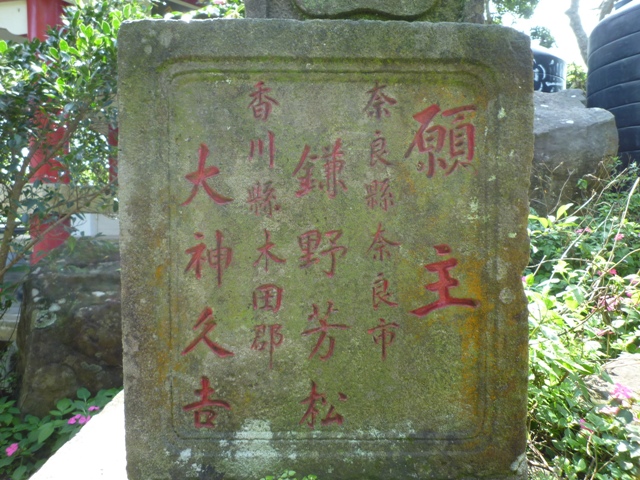 願主
奈良縣奈良市
鎌野芳松
香川縣木田郡
大神久吉